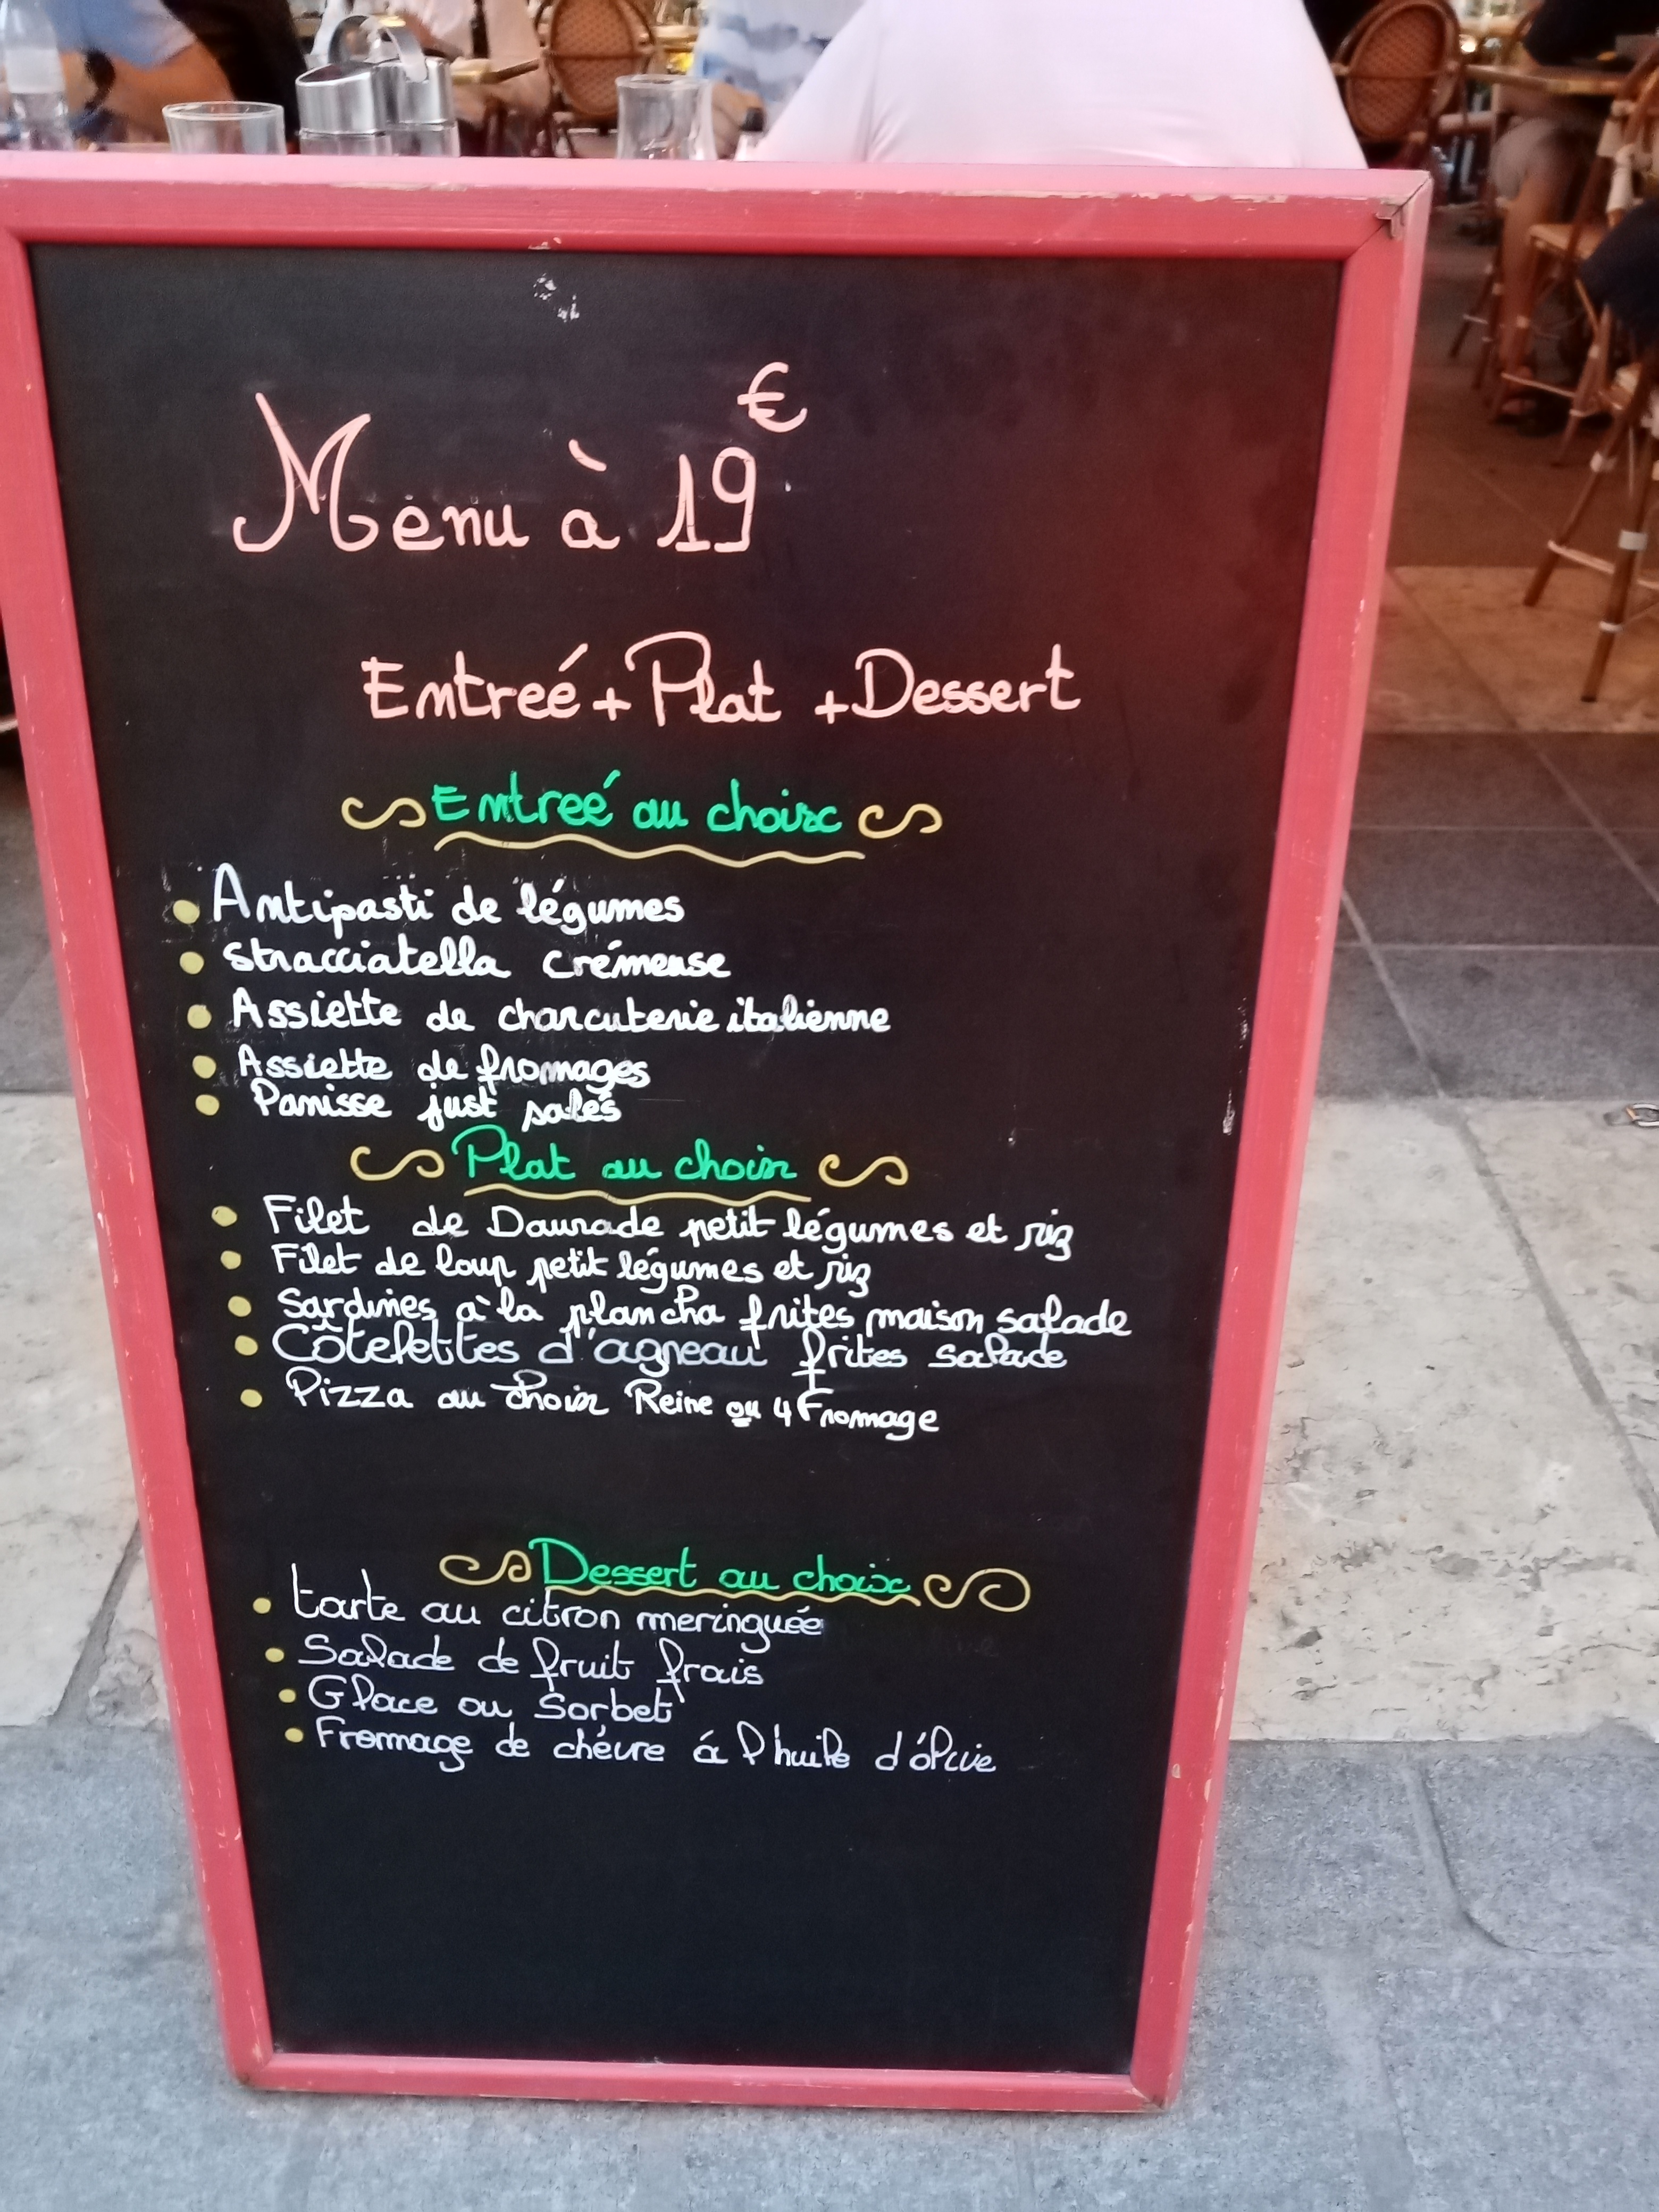 Menu à 19€
Entreé + Plat + Dessert
Entreé au choix
Antipasti de légumes
Stracciatella crémeuse
Assiette de charcuterie italienne
Assiette de fromages
Panisse just salés
Plat au choix
Filet de Daurade petit légumes et riz
Filet de loup petit légumes et riz
Sardines à la plancha frites maison salade
Côtelettes d'agneau frites salade
Pizza au choix Reine ou 4 Fromage
Dessert au choix
tarte au citron meringuée
Salade de fruit frais
Glace ou Sorbet
Fromage de chévre á l'huile d'ólive